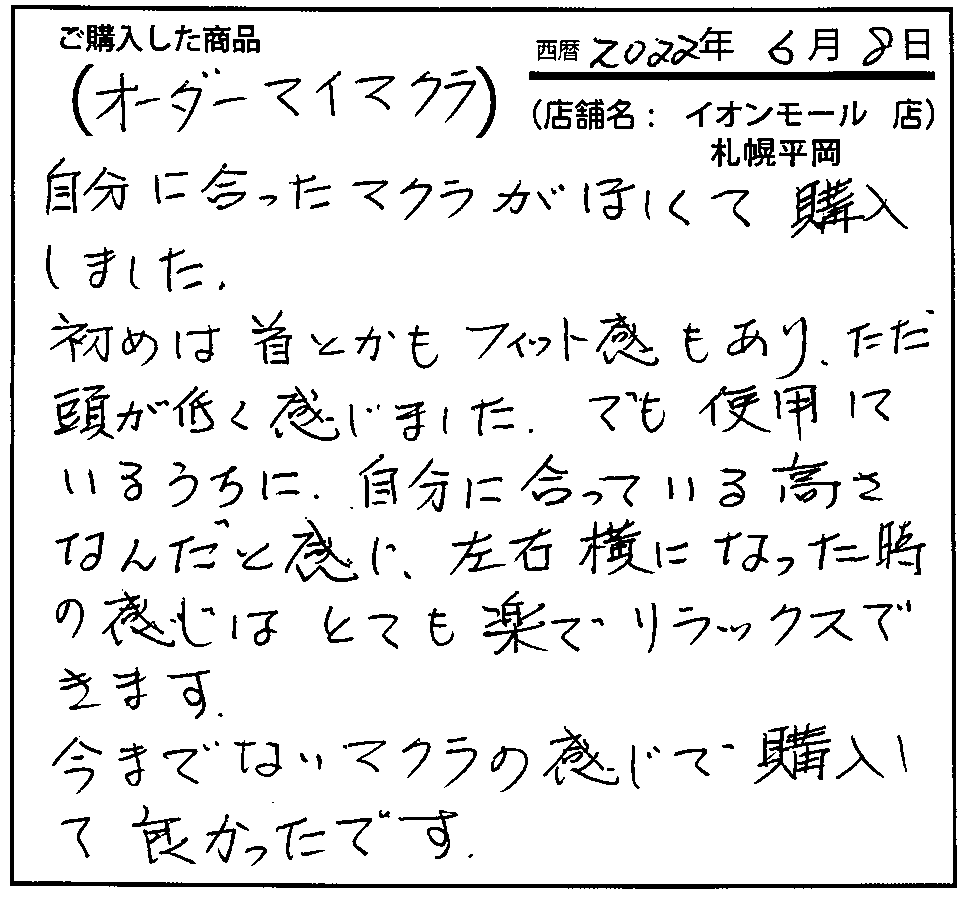 ご購入した商品
西暦 2022年 6月 8日
(オーダーマイマクラ)
(店舗名: イオンモール 店)
札幌平岡
自分に合ったマクラがほしくて購入
しました.
初めは首とかもフィット感もあり、ただ
頭が低く感じました. でも使用して
いるうちに、自分に合っている高さ
なんだと感じ、左右横になった時
の感じはとても楽で、リラックスで
きます.
今までないマクラの感じで、購入し
て良かったです.